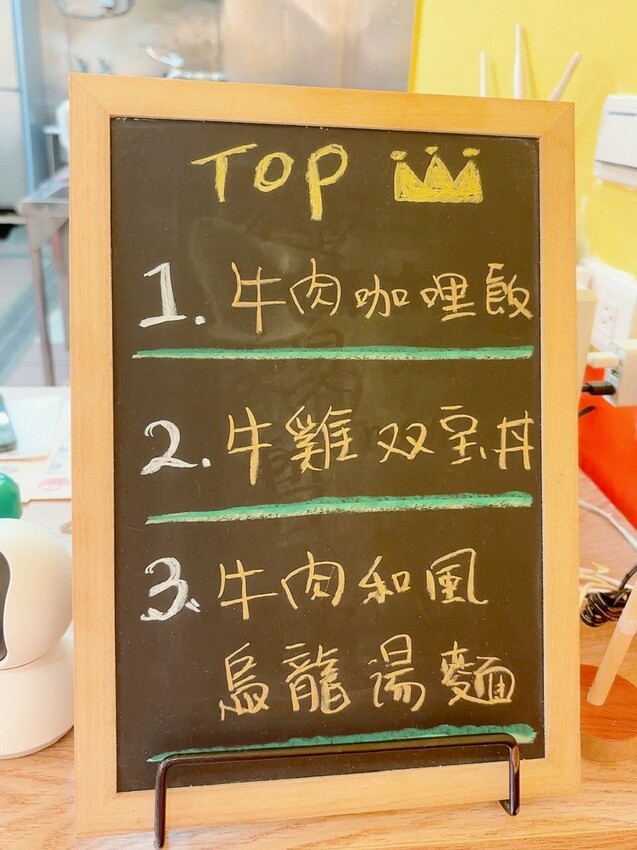 TOP
1. 牛肉咖哩飯
2. 牛雞双宝丼
3. 牛肉和風
烏龍湯麵